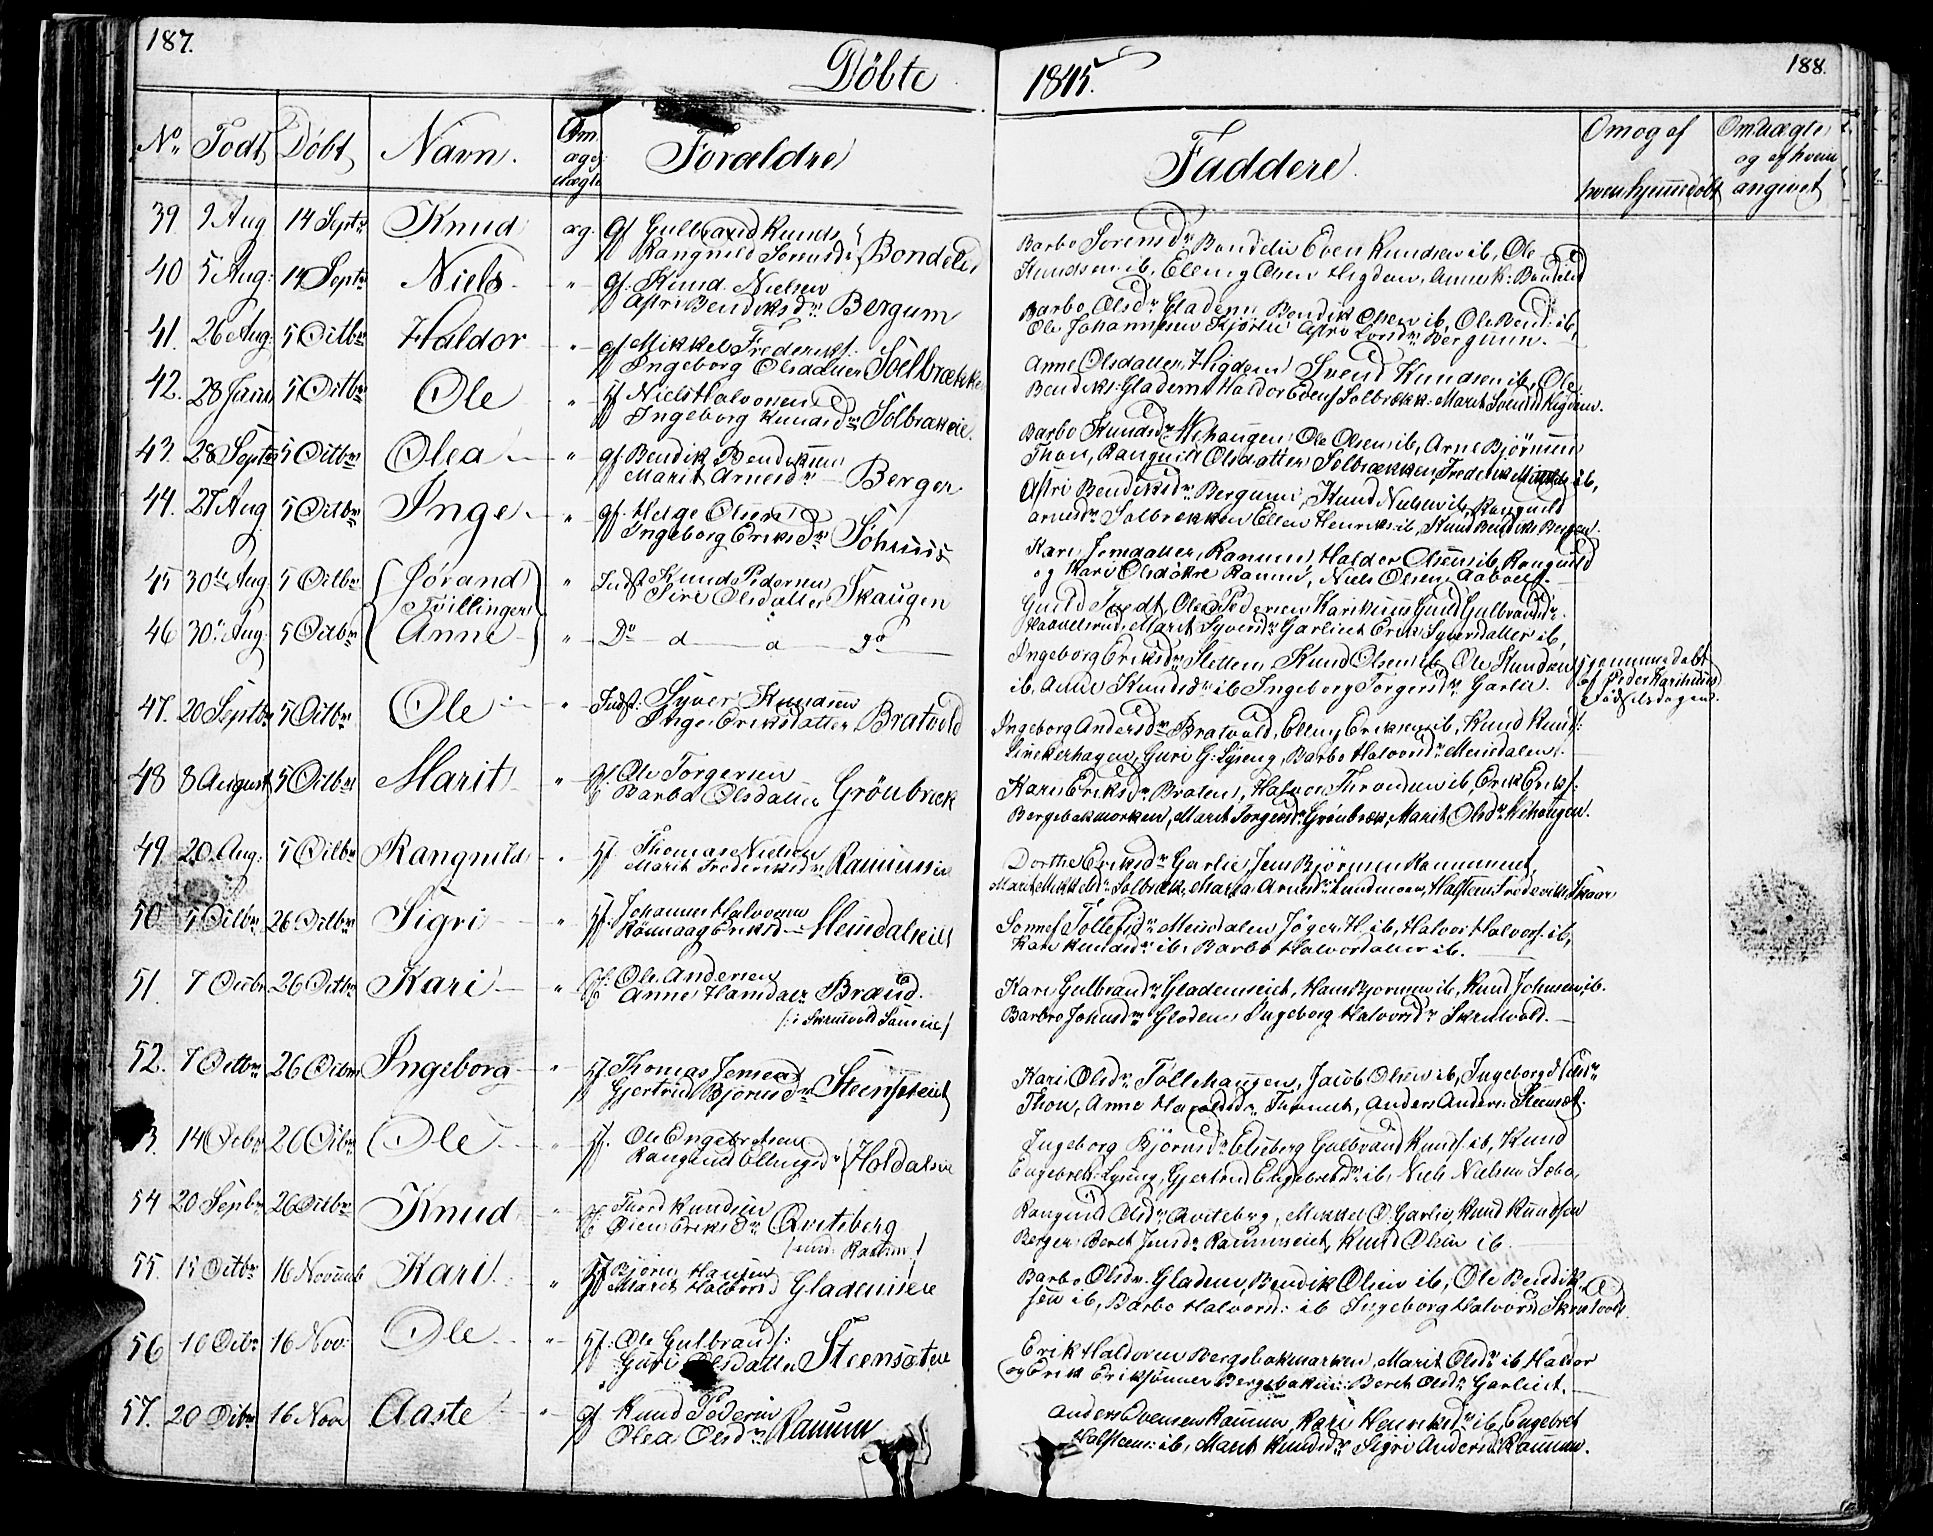 187.
Döbte
1845.
188.
No Födt Döbt Navn. Om æg el. uægte Forældre
Faddere.
Om og af hvem hjemmedöbt
Om uægte og af hvem angivet
39 9 Aug 14 Septr Knud æg. Gf Gulbrand Knuds
Rangnild Sørensdr Bondelid
Barbo Sorensdr Bondelie Even Knudsen ib, Ole
Knudsen ib, Elling Olsen Higdem, Anne K: Bondelid
40 5 Aug: 14 Septr Niels - " - Gf. Knud Nielsen
Astri Bendiksdr Bergum
Barbo Olsdr Gladem Bendik Olsen ib, Ole Bend: ib,
Ole Johannesen Kjörlie Astri Bergum.
41. 26 Aug: 5 Octbr Haldor - " - gf Mikkel Frederiks:
Ingeborg Olsdatter Solbrække
Anne Olsdatter Higdem Svend Knudsen ib, Ole
Bendiks: Gladem Haldor Evens Solbrækk: Marit Svensd Higdem.
42. 28 Juni 5 Octbr Ole " Hf Niels Halvorsen
Ingeborg Knudsdr Solbrækeie.
Barbo Knudsdr Nihaugen Ole Olsen ib, Arne Bjørnsen
Thon, Rangnild Olsdatter Solbrækken, Frederik Mikkels ib,
43. 28 Septr 5 Octbr Olea - " Gf Bendik Bendiksen
Marit Arnesdr Berger.
Astri Bendiksdr Bergum, Knud Nielsen ib, Rangnild
Arnesdr Solbrækken Ellen Henriks ib, Knud Bendiks Bergum.
44. 27 Aug 5 Octbr Inge - " - gf. Helge Olsen
Ingeborg Eriksdr
Kari Jonsdatter, Ramun, Haldor Olsen ib, Rangnild
og Kari Olsdøttre Ramun, Niels Olsen
45 30te Aug 5 Octbr Jørand " Indst Knud Pedersen
Siri Olsdatter Skaugen
Tvillinger
Gunild Tvedt, Ole Pedersen Karihuus Gunild Gulbrandsdr
Marit Syversdr Garliet Erik Syversdatter ib,
46 30te Aug. 5 Octbr Anne - " Do — d — o — do —
Ingeborg Eriksdr Stellem, Knud Olsen ib, Ole Knudsen
ib, Anne Knudsdr ib Ingeborg Torgersdr Garlie.
hjemmedøbt
af Peder Karihuus
Fødselsdagen.
47. 20 Septbr 5 Octbr Ole - " Indst: Syver Knudsen
Inge Eriksdatter Bratvold
Ingeborg Andersdr Bratvold, Elling Eriksen ib, Knud Knuds:
Guri G: Lyseng, Barbo Halvorsdr Meindalen.
48 8 August 5 Octbr Marit - " Gf Ole Torgersen
Barbo Olsdatter Grönbrek
Kari Eriksdr Braten, Halvor Throndsen ib, Erik Eriks:
Bergsbakmarken, Marit Torgersdr Grönbræk, Marit Olsdr Nihaugen.
49 20 Aug: 5 Octbr Rangnild - " Hf Thomas Nielsen
Marit Frederiksdr
Dorthe Eriksdr Garlie, Jens Bjørnsen
Marit Mikkelsdr Solbræk, Marha Arnesdr Lundmoen, Halsteen Frederiksen
50 5 Octbr 26 Octbr Sigri - " Hf. Johannes Halvorsen
Rönnaug Eriksd Meindalseie
Tollefsdr Meindalen, H ib, Halvor Halvors: ib,
Kari Knudsdr ib, Barbo Halvorsdatter ib.
51. 7 Octbr 26 Octbr Kari - " Gf. Ole Andersen
Anne Hansdatr Braud.
/: i Skrutvold :/
Kari Gulbrandsdr Gladenseiet, Hans Bjørnsen ib, Knud Johnsen ib.
Barbro Johnsdr Gladen Ingeborg Halvorsdr Skrutvold.
52. 7 Octbr 26 Octbr Ingeborg - " - Hf. Thomas Jensen
Gjertrud Bjørnsdr
Kari Olsdr Töllehaugen, Jacob Olsen ib, Ingeborg
Thon, Anne Haraldsdr Anders Anders: Steensæt.
3. 14 Octbr 26 Octbr Ole - " Hf. Ole Engebretsen
Rangnild Ellingsdr
Ingeborg Bjørnsdr Elsberg Gulbrand Knuds: ib, Knud
Engebrets: Lyseng, Gjertrud Engebretsdr ib, Niels Nielsen Sæbo,
54 20 Septbr 26 Octbr Knud - " Gf Thord Knudsen
Eriksdr Qviteberg
Rangnild Olsdr Qviteberg, Mikkel O: Garlie, Knud Knudsen
Berger Beret Jensdr Knud Olsen ib.
55. 15 Octbr 16 Novemb Kari. " Hf Bjørn Hansen
Marit Halvorsd Gladenseie
Barbo Olsdr Gladen, Bendik Olsen ib, Ole Bendik
sen ib, Barbo Halvorsd: ib Ingeborg Halvorsd Skrutvold.
56 10 Octbr 16 Nov: Ole - " - Hf: Ole Gulbrands:
Guri Olsdatter Steensæteie
Erik Haldorsen Bergsbakmarken, Marit Olsdr ib Haldor
og Erik Eriksönner Bergsbakm: Beret Olsdr Garliet.
57. 20 Octbr 16 Nov Aaste - " - gf Knud Pedersen
Olea Olsdr Ramun
Anders Evensen Ramun, Kari Henriksdr ib, Engebret
Halsteens: ib, Marit Knudsdr Sigri Andersd: Ramun.